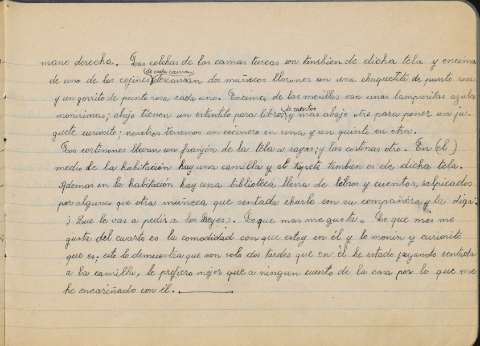 mano derecha. Las colchas de las camas turcas son también de dicha tela y encima
de cada cama
de uno de los cojines descansan dos muñecos llorones con una chaquetita de punto rosa
y un gorrito de punto rosa cada uno. Encima de las mesillas con unas lamparitas azules
de cuentos
monísimas; abajo tienen un estantito para libros y mas abajo otro para poner un ju-
guete curiosito; nosotras tenemos un cocinero en una y un quinto en otra.
Los cortinones llevan un franjón de la tela a rayas; y las cortinas otro. En (el)
medio de la habitación hay una camilla y el tapete tambien es de dicha tela.
Ademas en la habitación hay una biblioteca llena de libros y cuentos, salpicados
por algunos que otra muñeca que sentada charla con su compañera y la diga:
¿Que lo vas a pedir a los Reyes?. Lo que mas me gusta. Lo que mas me
gusta del cuarto es la comodidad con que estoy en él y lo monin y curiosito
que es. esto lo demuestra que son ya dos tardes que en él he estado jugando sentada
a la camilla, lo prefiero mejor que a ningun cuarto de la casa por lo que me
he encariñado con él.